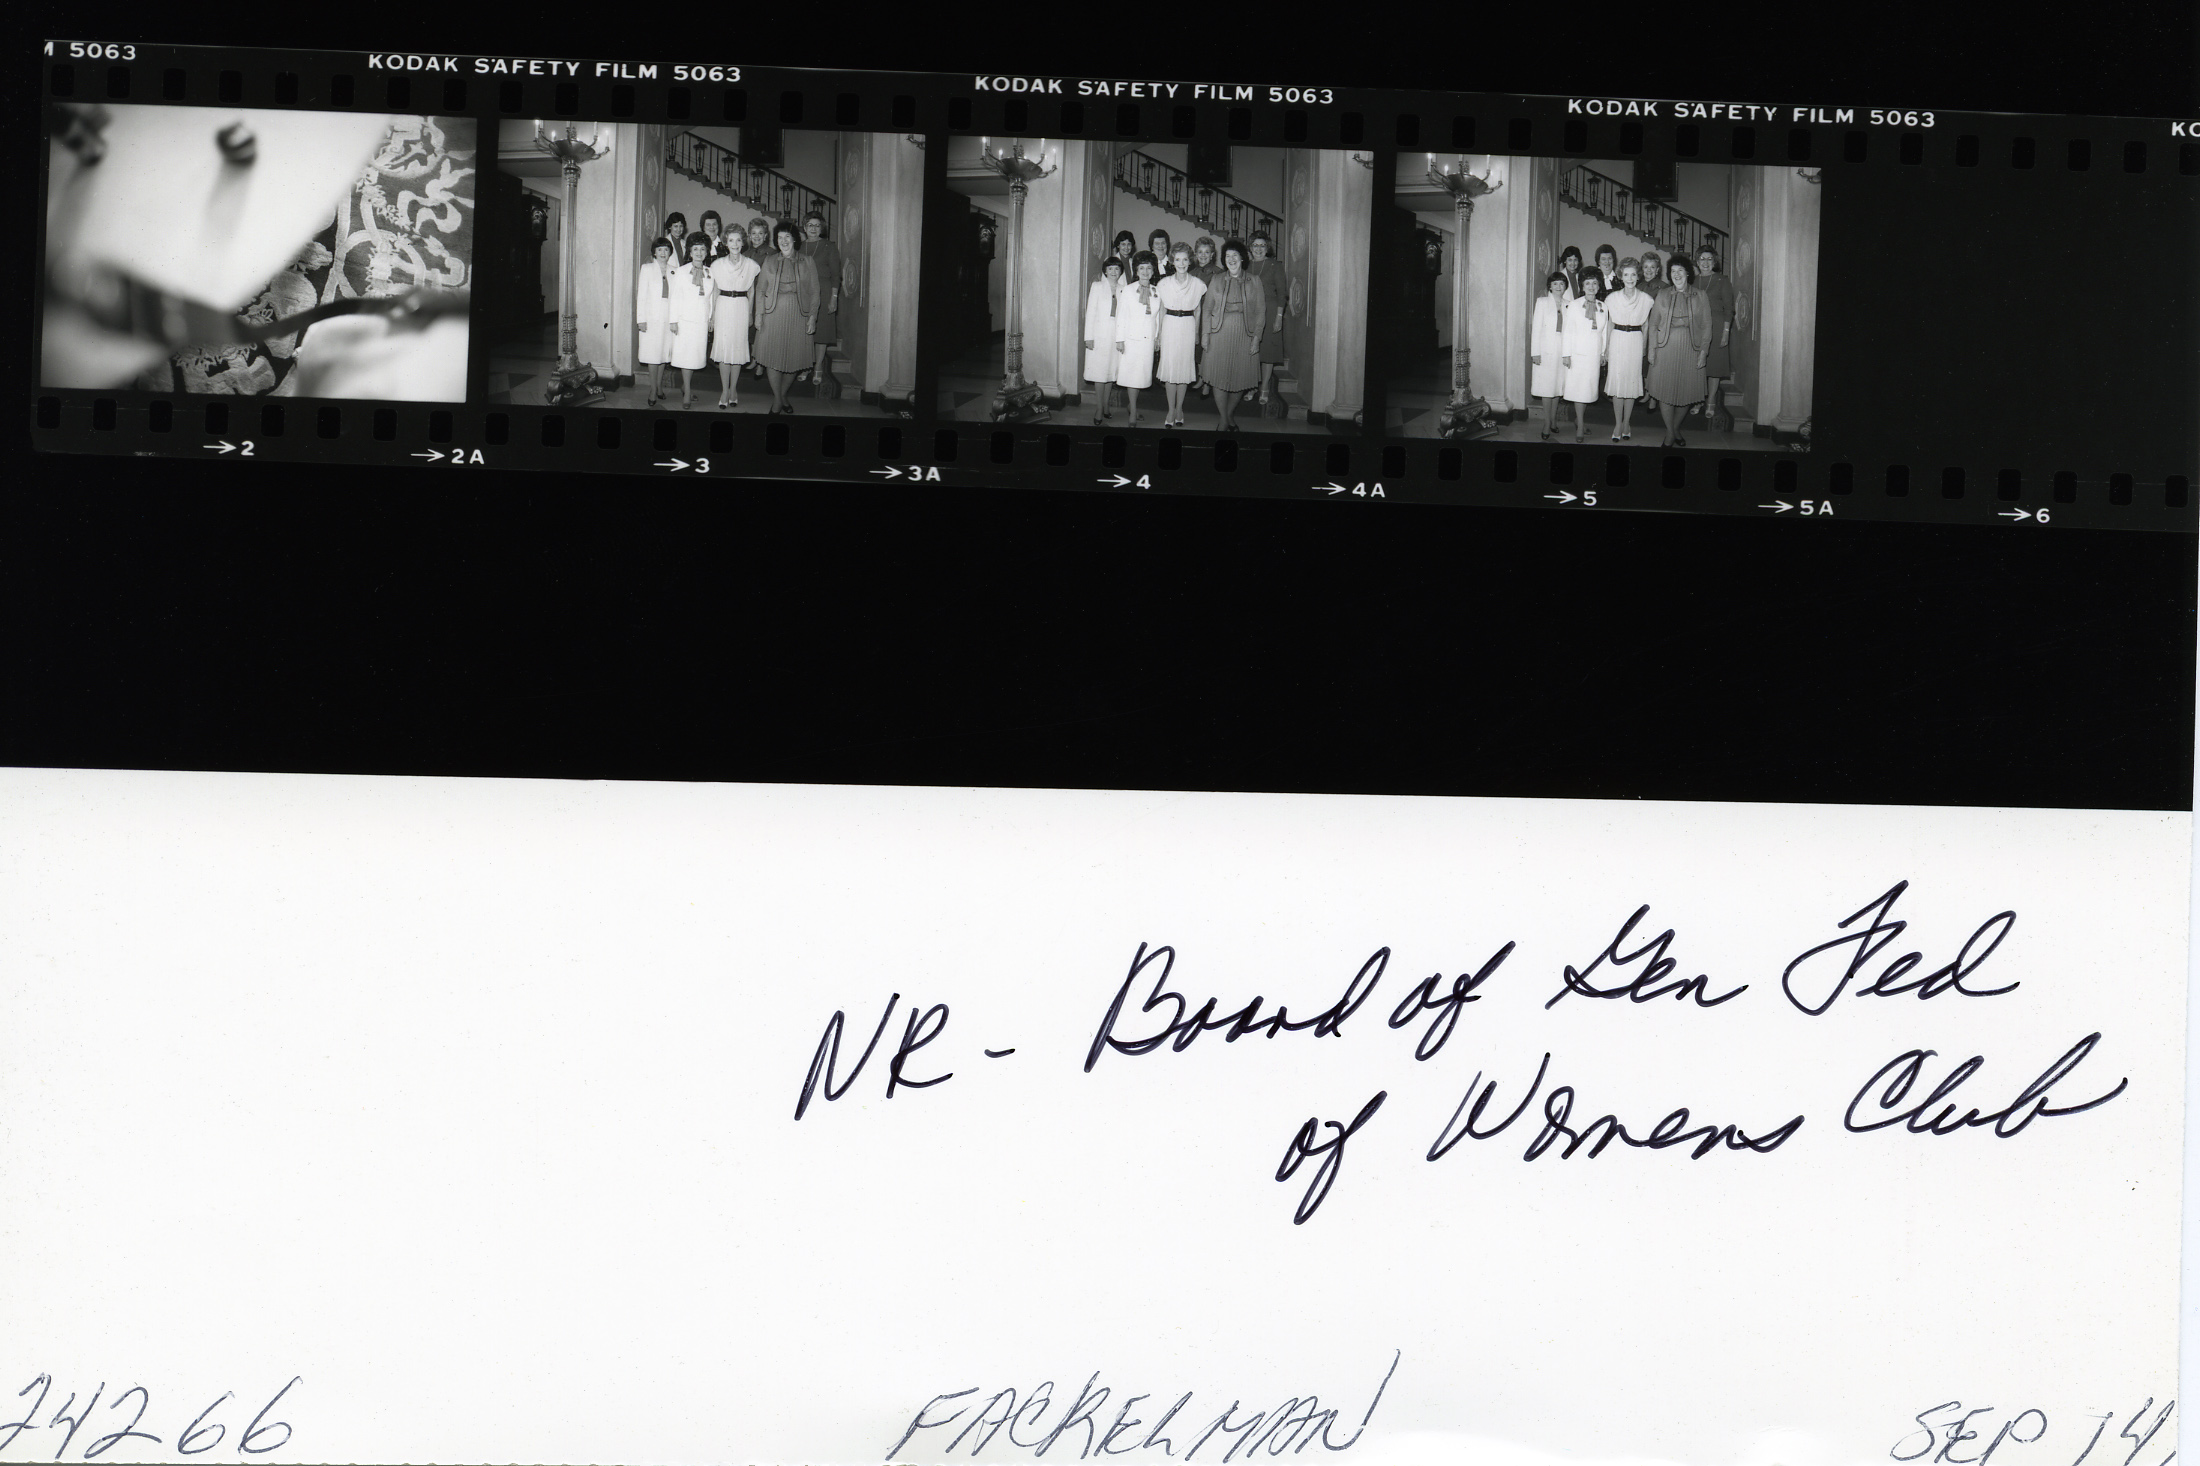 M 5063
KODAK SAFETY FILM 5063
KODAK SAFETY FILM 5063
KODAK SAFETY FILM 5063
KO
→2
→2A
→3
→3A
→4
→4A
→5
→5A
→6
NR - Board of Gen Fed
of Womens Club
24266
FACKELMAN
SEP 14,